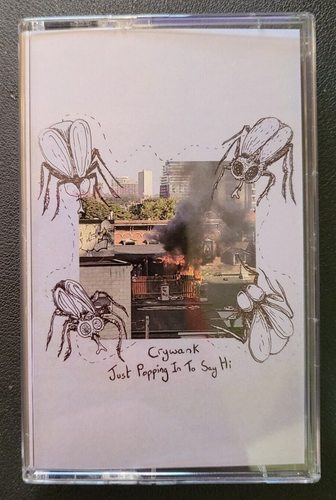 Crywank
Just Popping In To Say Hi